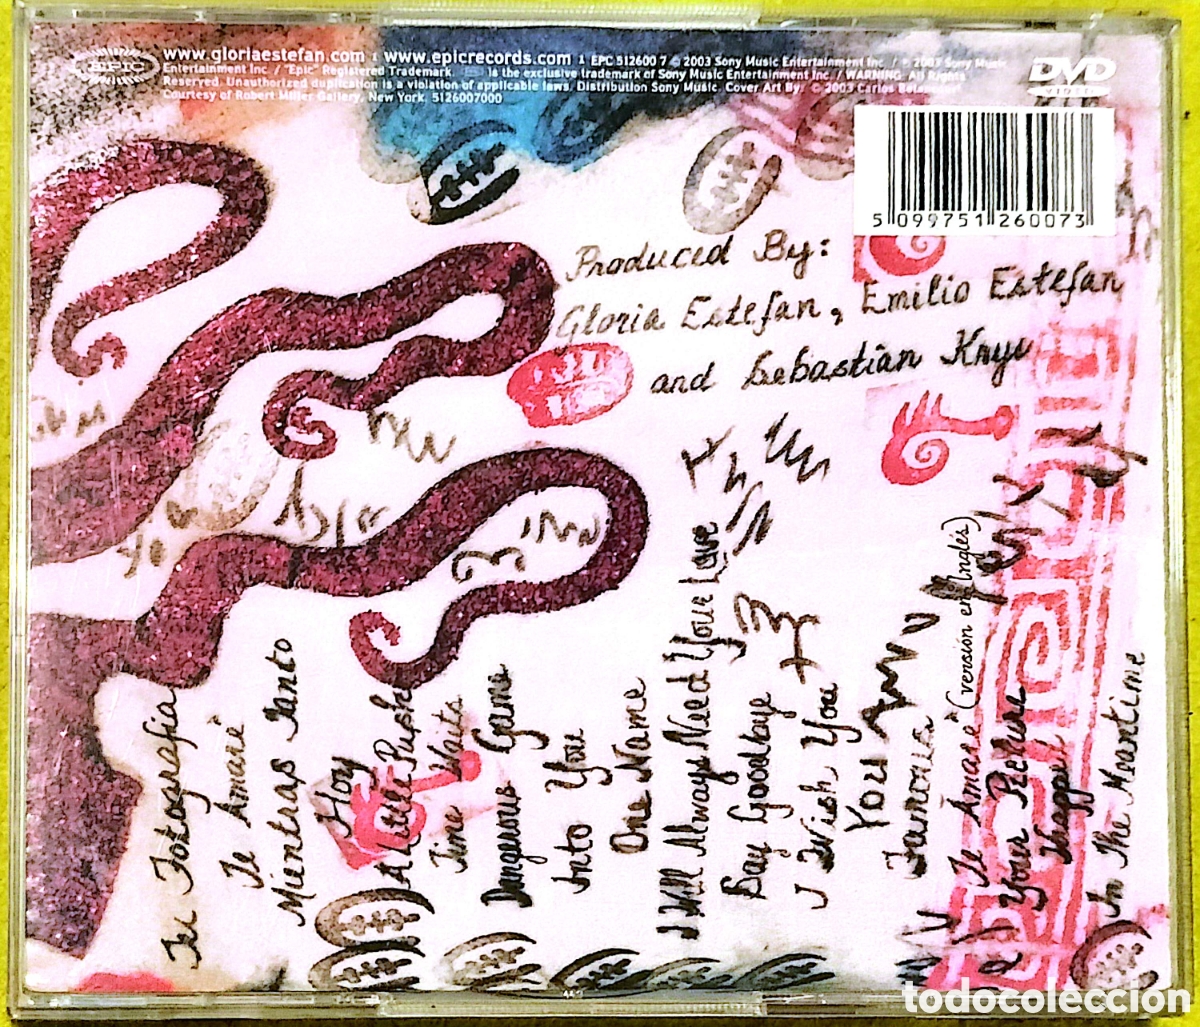 EPIC
www.gloriaestefan.com ı www.epicrecords.com ı EPC 512600 7 © 2003 Sony Music Entertainment Inc. / ℗ 2003 Sony Music
Entertainment Inc. / "Epic" Registered Trademark. is the exclusive trademark of Sony Music Entertainment Inc. / WARNING: All Rights
Reserved. Unauthorized duplication is a violation of applicable laws. Distribution Sony Music. Cover Art By: © 2003 Carlos
Courtesy of Robert Miller Gallery, New York. 5126007000
DVD
VIDEO
5 099751 260073
Produced By:
Gloria Estefan, Emilio Estefan
and Sebastian Krys
Tu Fotografía
Te Amaré
Mientras Tanto
Hoy
A Little Push
Time Waits
Dangerous Game
Into You
One Name
I Will Always Need Your Love
Say Goodbye
I Wish You
You
Famous
Te Amaré (versión en Inglés)
Your Picture
Wrapped
In The Meantime
todocoleccion